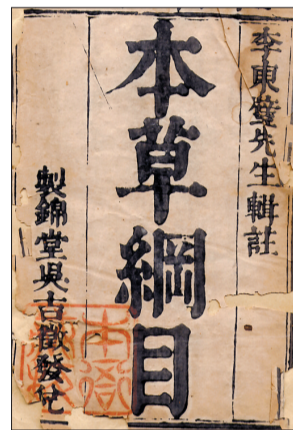 李東璧先生輯註
本草綱目
製錦堂吳吉徵發兌